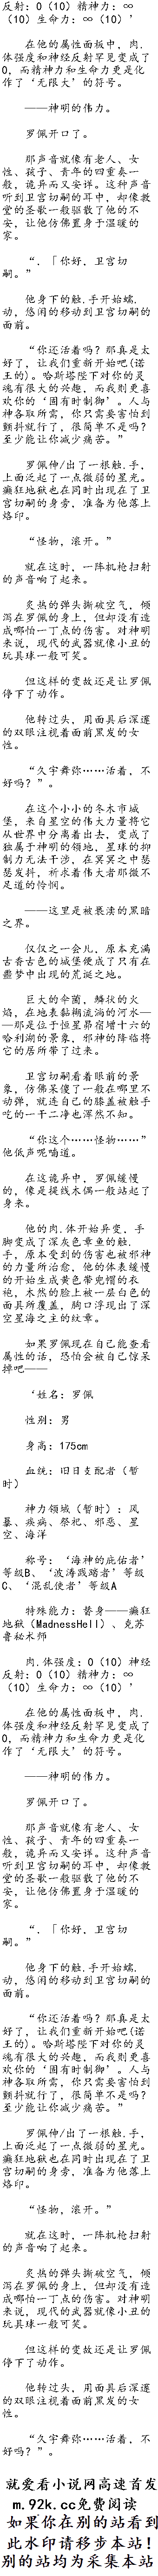 反射：0（10）精神力：∞
（10）生命力：∞（10）’
在他的属性面板中，肉.
体强度和神经反射罕见变成了
0，而精神力和生命力更是化
作了‘无限大’的符号。
——神明的伟力。
罗佩开口了。
那声音就像有老人、女
性、孩子、青年的四重奏一
般，诡异而又安详。这种声音
听到卫宫切嗣的耳中，却像教
堂的圣歌一般驱散了他的不
安，让他仿佛置身于温暖的
家。
“．「你好，卫宫切
嗣。”
他身下的触.手开始蠕.
动，悠闲的移动到卫宫切嗣的
面前。
“你还活着吗？那真是太
好了，让我们重新开始吧(诺
王的)。哈斯塔陛下对你的灵
魂有很大的兴趣，而我则更喜
欢你的‘固有时制御’。人与
神各取所需，你只需要害怕到
颤抖就行了，很简单不是吗？
至少能让你减少痛苦。”
罗佩伸/出了一根触.手，
上面泛起了一点微弱的星光。
癫狂地狱也在同时出现在了卫
宫切嗣的身旁，准备为他落上
烙印。
“怪物，滚开。”
就在这时，一阵机枪扫射
的声音响了起来。
炙热的弹头撕破空气，倾
泻在罗佩的身上，但却没有造
成哪怕一丁点的伤害。对神明
来说，现代的武器就像小丑的
玩具球一般可笑。
但这样的变故还是让罗佩
停下了动作。
他转过头，用面具后深邃
的双眼注视着面前黑发的女
性。
“久宇舞弥……活着，不
好吗？”。
在这个小小的冬木市城
堡，来自星空的伟大力量将它
从世界中分离着出去，变成了
独属于神明的领地，星球的抑
制力无法干涉，在冥冥之中瑟
瑟发抖，祈求着伟大者那微不
足道的怜悯。
——这里是被亵渎的黑暗
之界。
仅仅之一会儿，原本充满
古香古色的城堡便成了只有在
噩梦中出现的荒诞之地。
巨大的伞菌，鳞状的火
焰，在地表黏糊流淌的河水—
—那是位于恒星昴宿增十六的
哈利湖的景象，邪神的降临将
它的居所带了过来。
卫宫切嗣看着眼前的景
象，仿佛呆傻了一般在哪里不
动弹，就连自己的膝盖被触手
吃的一干二净也浑然不知。
“你这个……怪物……”
他低声呢喃道。
在这诡异中，罗佩缓慢
的，像是提线木偶一般站起了
身来。
他的肉.体开始异变，手
脚变成了深灰色章鱼的触.
手，原本受到的伤害也被邪神
的力量所治愈，他的体表缓慢
的开始生成黄色带兜帽的衣
袍，木然的脸上被一层白色的
面具所覆盖，胸口浮现出了深
空星海之主的纹章。
如果罗佩现在自己能查看
属性的话，恐怕会被自己惊呆
掉吧——
‘姓名：罗佩
性别：男
身高：175cm
血统：旧日支配者（暂
时）
神力领域（暂时）：风
暴、疾病、祭祀、邪恶、星
空、海洋
称号：‘海神的庇佑者’
等级B、‘波涛践踏者’等级
C、‘混乱使者’等级A
特殊能力：替身——癫狂
地狱（MadnessHell）、克苏
鲁秘术师
肉.体强度：0（10）神经
反射：0（10）精神力：∞
（10）生命力：∞（10）’
在他的属性面板中，肉.
体强度和神经反射罕见变成了
0，而精神力和生命力更是化
作了‘无限大’的符号。
——神明的伟力。
罗佩开口了。
那声音就像有老人、女
性、孩子、青年的四重奏一
般，诡异而又安详。这种声音
听到卫宫切嗣的耳中，却像教
堂的圣歌一般驱散了他的不
安，让他仿佛置身于温暖的
家。
“．「你好，卫宫切
嗣。”
他身下的触.手开始蠕.
动，悠闲的移动到卫宫切嗣的
面前。
“你还活着吗？那真是太
好了，让我们重新开始吧(诺
王的)。哈斯塔陛下对你的灵
魂有很大的兴趣，而我则更喜
欢你的‘固有时制御’。人与
神各取所需，你只需要害怕到
颤抖就行了，很简单不是吗？
至少能让你减少痛苦。”
罗佩伸/出了一根触.手，
上面泛起了一点微弱的星光。
癫狂地狱也在同时出现在了卫
宫切嗣的身旁，准备为他落上
烙印。
“怪物，滚开。”
就在这时，一阵机枪扫射
的声音响了起来。
炙热的弹头撕破空气，倾
泻在罗佩的身上，但却没有造
成哪怕一丁点的伤害。对神明
来说，现代的武器就像小丑的
玩具球一般可笑。
但这样的变故还是让罗佩
停下了动作。
他转过头，用面具后深邃
的双眼注视着面前黑发的女
性。
“久宇舞弥……活着，不
好吗？”。
就爱看小说网高速首发
m.92k.cc免费阅读
如果你在别的站看到
此水印请移步本站！
别的站均为采集本站